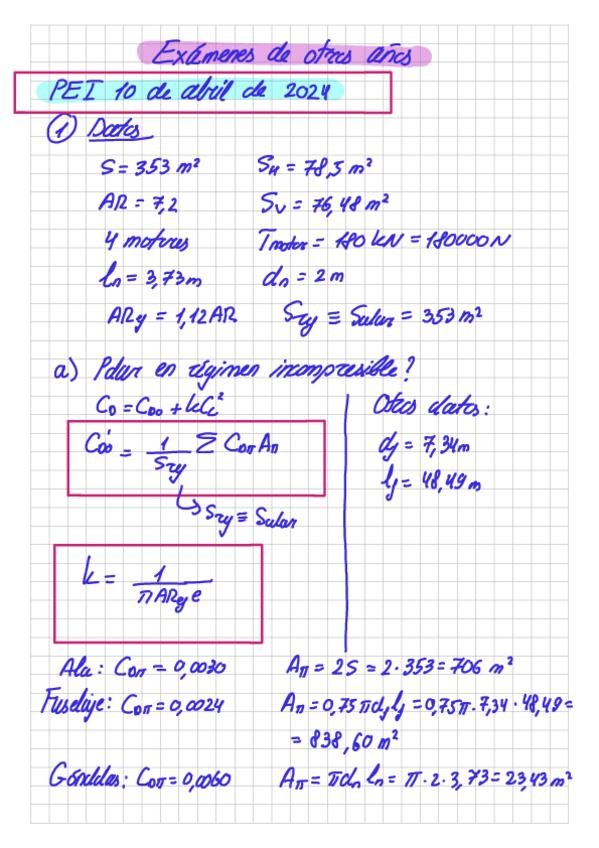 Exámenes de otros años
PEI 10 de abril de 2024
① Datos
S = 353 m² S_H = 78,5 m²
AR = 7,2 S_V = 76,48 m²
4 motores T_motor = 180 kN = 180000 N
l_n = 3,73 m d_n = 2 m
AR_ef = 1,12 AR S_ref ≡ S_alar = 353 m²
a) Polar en régimen incompresible?
C_D = C_D0 + kC_L² Otros datos:
C_D0' = 1/S_ref Σ C_Dπ A_π d_f = 7,34 m
l_f = 48,49 m
↳ S_ref ≡ S_alar
k = 1/(π AR_ef e)
Ala: C_Dπ = 0,0030 A_π = 2S = 2·353 = 706 m²
Fuselaje: C_Dπ = 0,0024 A_π = 0,75 π d_f l_f = 0,75π·7,34·48,49 =
= 838,60 m²
Góndolas: C_Dπ = 0,0060 A_π = π d_n l_n = π·2·3,73 = 23,43 m²